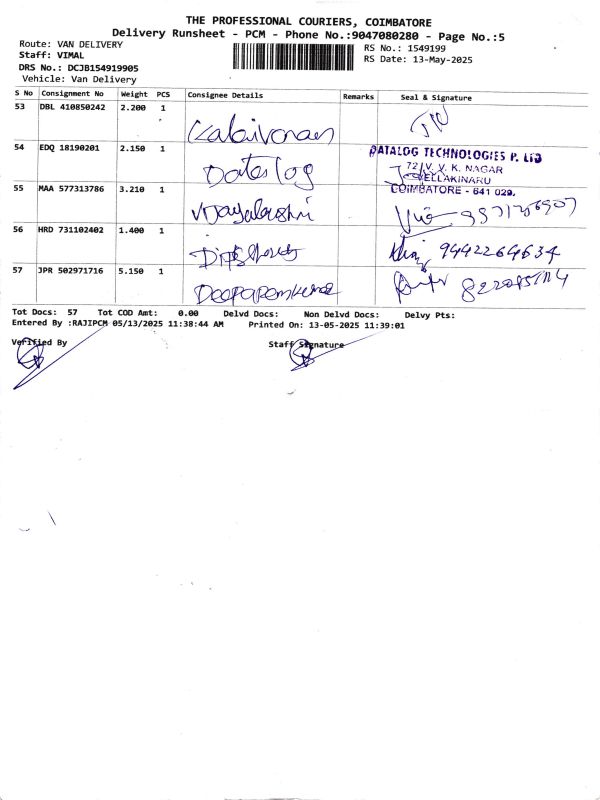 THE PROFESSIONAL COURIERS, COIMBATORE
Delivery Runsheet - PCM - Phone No.:9047080280 - Page No.:5
Route: VAN DELIVERY
RS No.: 1549199
Staff: VIMAL
RS Date: 13-May-2025
DRS No.: DCJB154919905
Vehicle: Van Delivery
S No Consignment No Weight PCS Consignee Details Remarks Seal & Signature
53 DBL 410850242 2.200 1 Kalaivanan
54 EDQ 18190201 2.150 1 Datalog
DATALOG TECHNOLOGIES P. LTD
72/V. V. K. NAGAR
VELLAKINARU
COIMBATORE - 641 029.
55 MAA 577313786 3.210 1 Vijayalakshmi
56 HRD 731102402 1.400 1 9442264634
57 JPR 502971716 5.150 1
Tot Docs: 57 Tot COD Amt: 0.00 Delvd Docs: Non Delvd Docs: Delvy Pts:
Entered By :RAJIPCM 05/13/2025 11:38:44 AM Printed On: 13-05-2025 11:39:01
Verified By Staff Signature